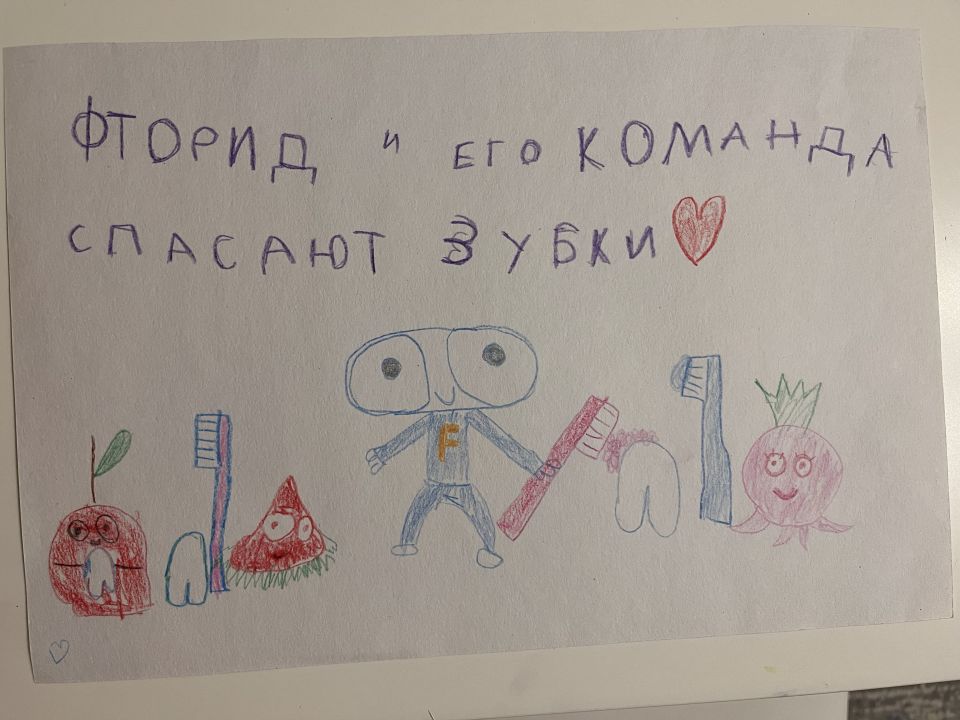 ФТОРИД и ЕГО КОМАНДА
СПАСАЮТ ЗУБКИ
F